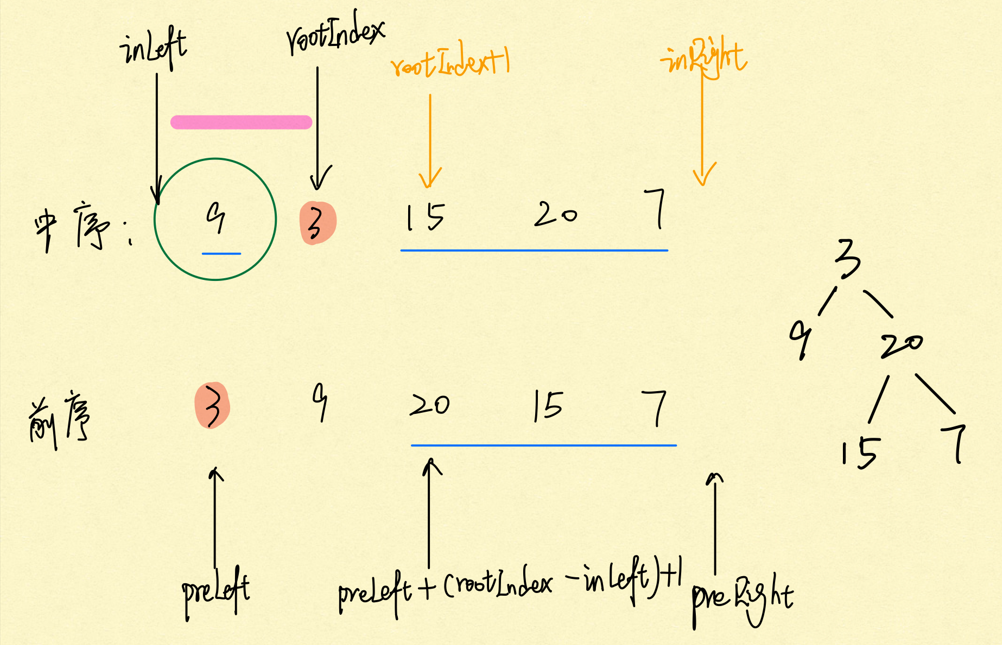 inLeft rootIndex rootIndex+1 inRight
中序: 9 3 15 20 7
3
9 20
15 7
前序 3 9 20 15 7
preLeft preLeft+(rootIndex-inLeft)+1 preRight